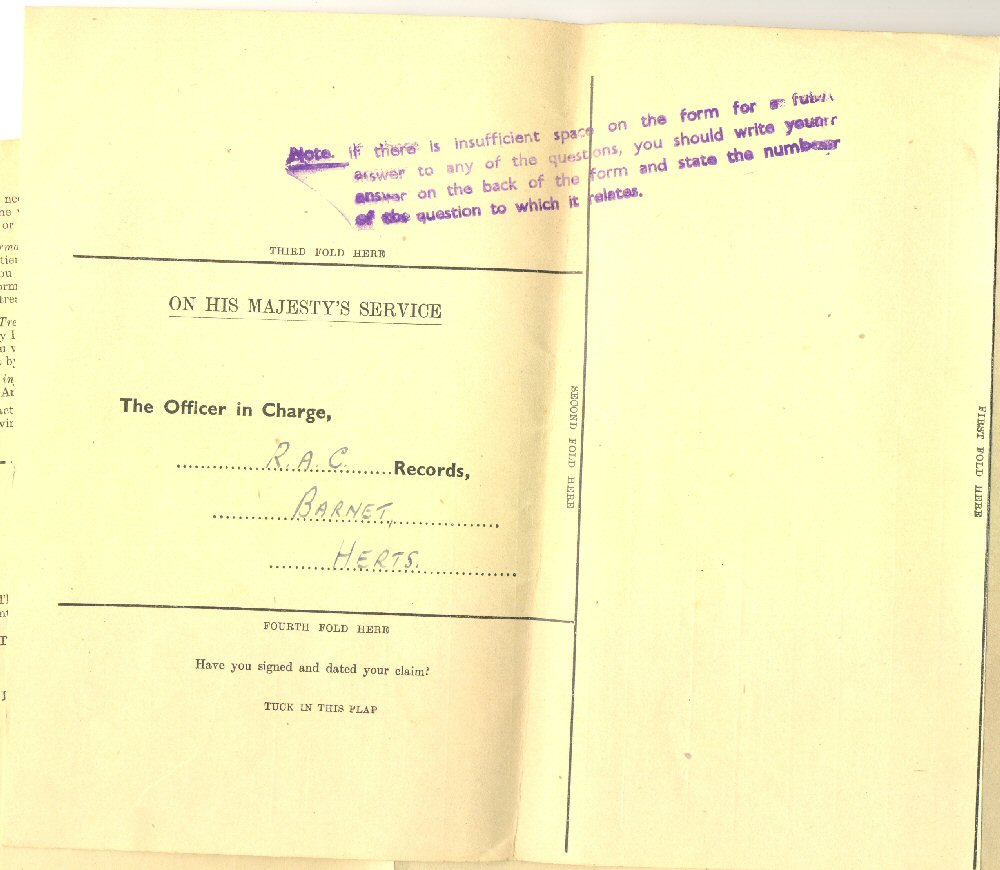 Note. If there is insufficient space on the form for a full
answer to any of the questions, you should write your
answer on the back of the form and state the number
of the question to which it relates.
THIRD FOLD HERE
ON HIS MAJESTY'S SERVICE
The Officer in Charge,
R.A.C. Records,
BARNET,
HERTS.
FOURTH FOLD HERE
Have you signed and dated your claim?
TUCK IN THIS FLAP
SECOND FOLD HERE
FIRST FOLD HERE